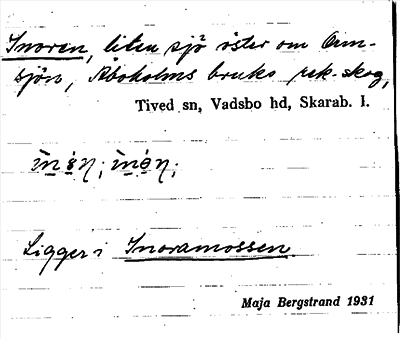 Inoren, liten sjö öster om Unn-
sjön, Åboholms bruks rek-skog,
Tived sn, Vadsbo hd, Skarab. l.
Ligger i Inoramossen
Maja Bergstrand 1931